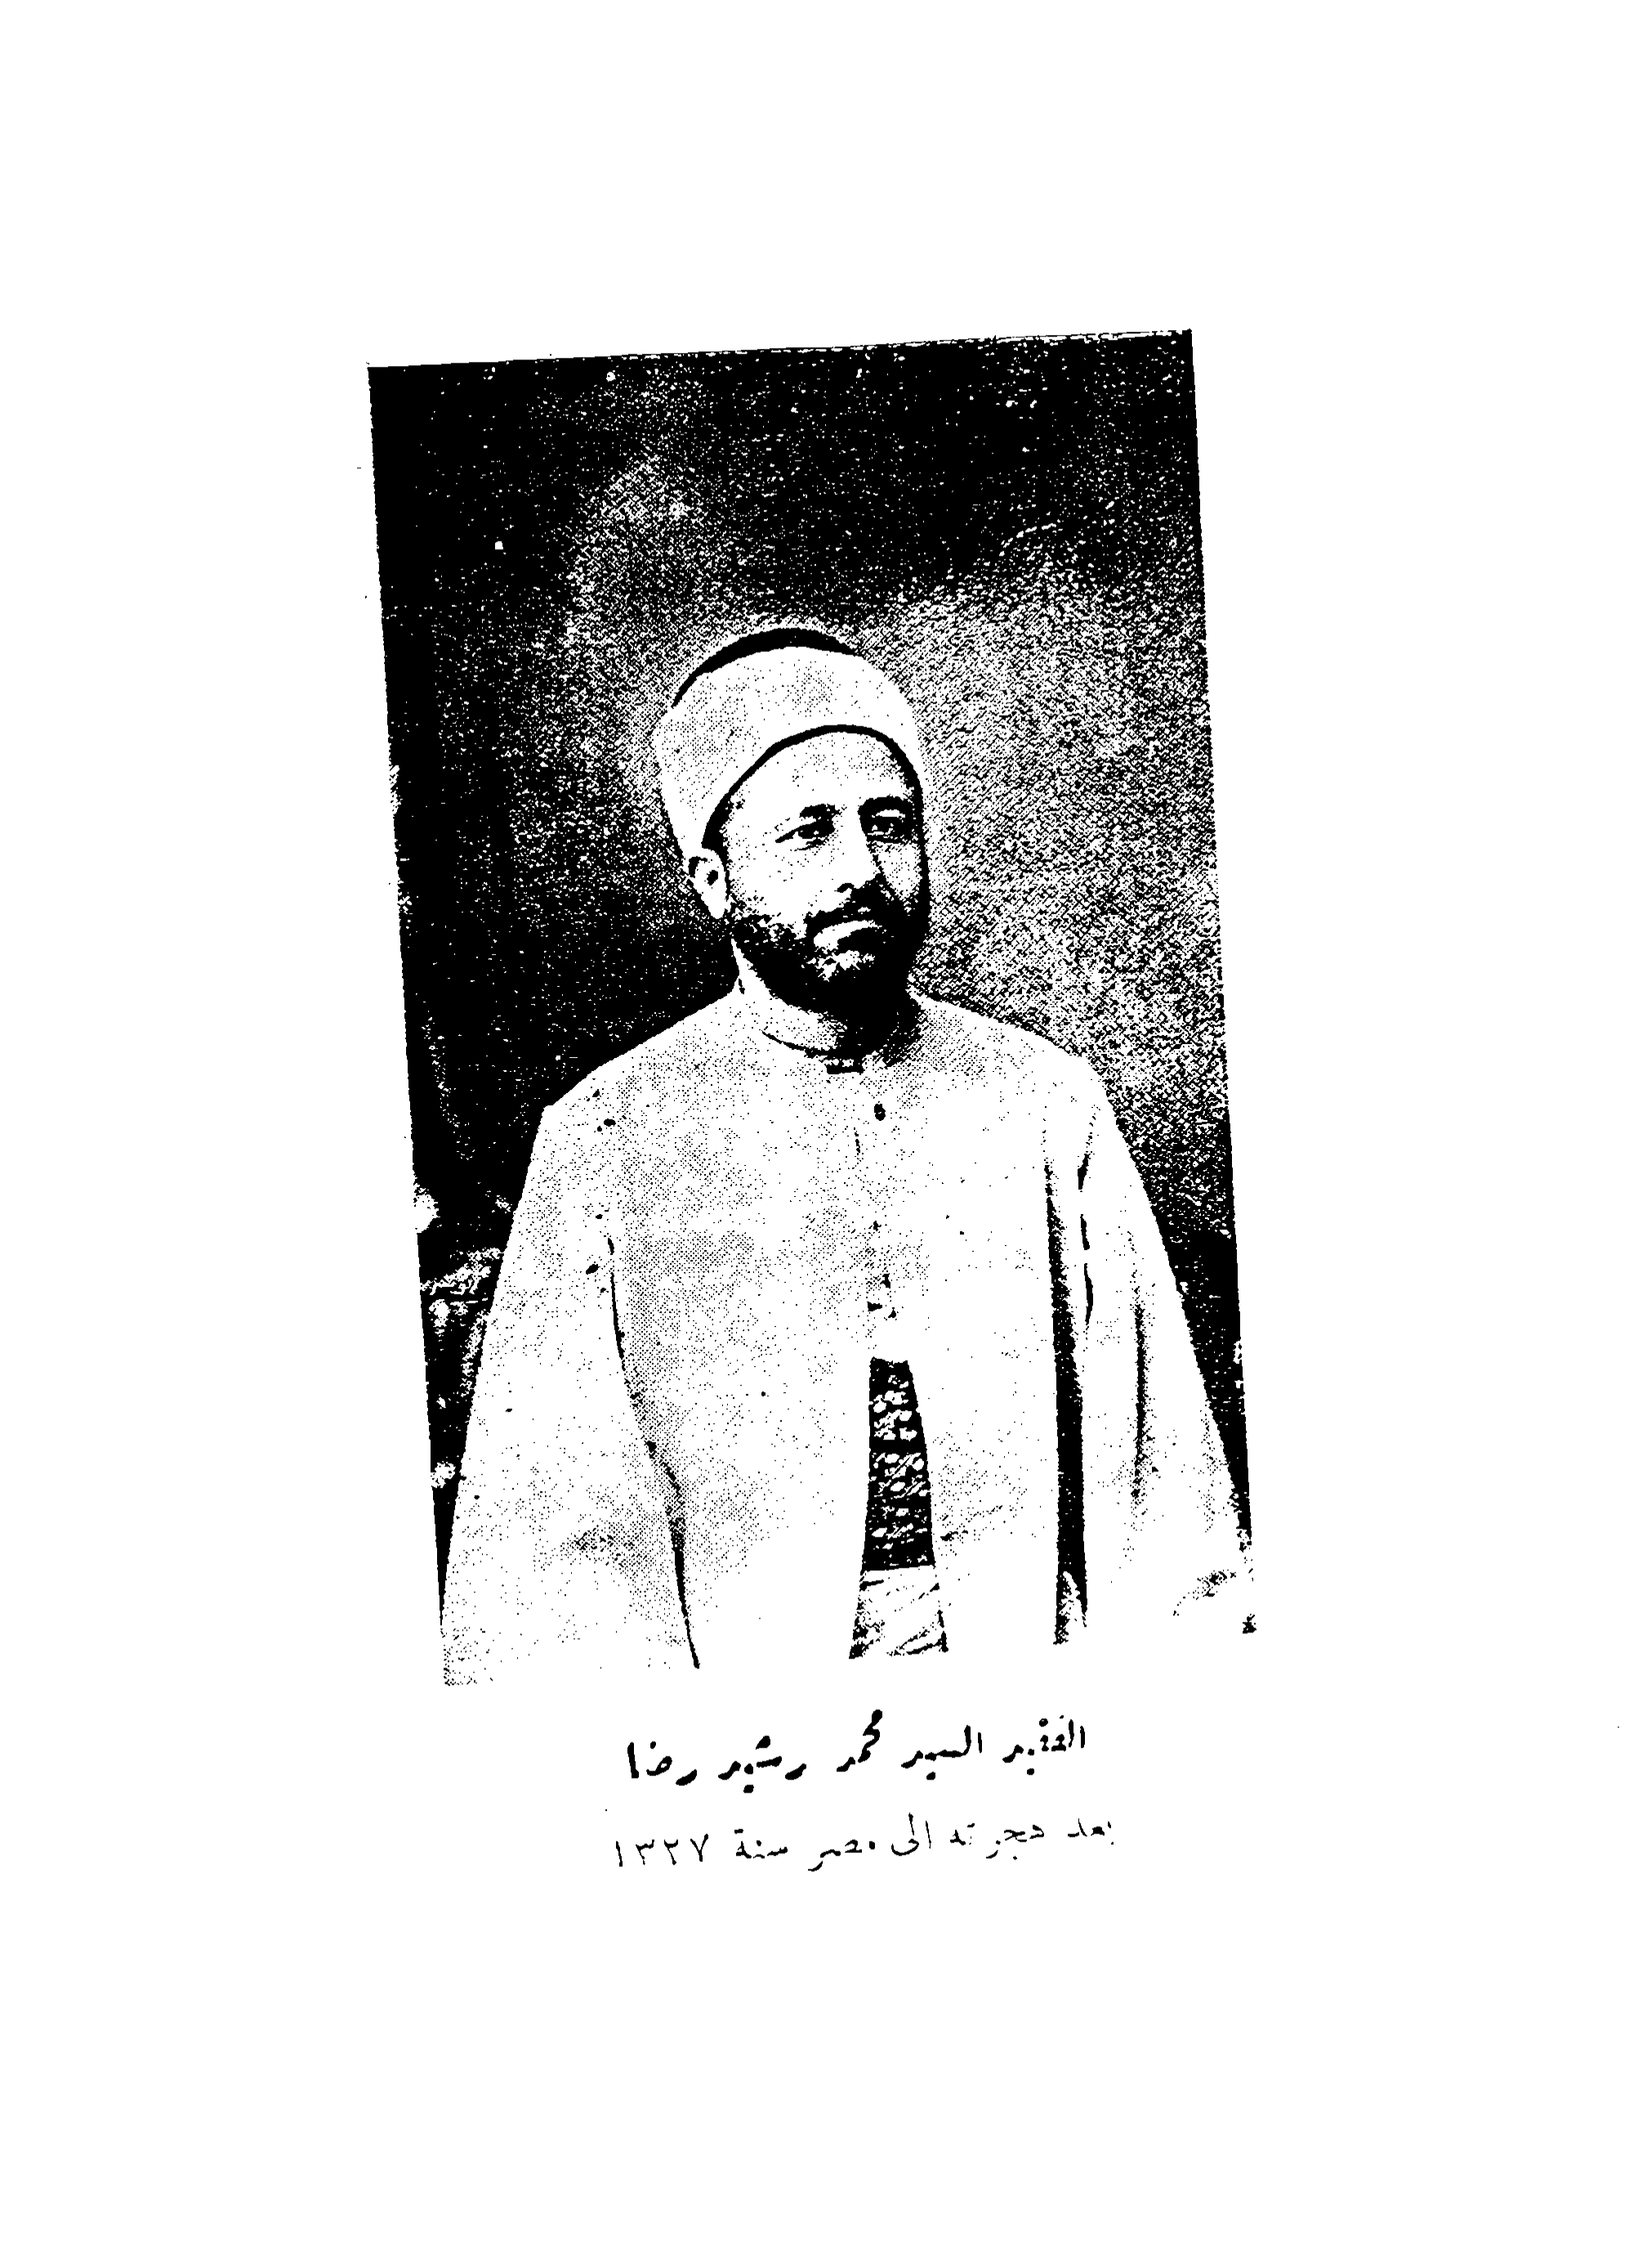 الفقيد السيد محمد رشيد رضا
بعد هجرته الى مصر سنة ١٣٢٧